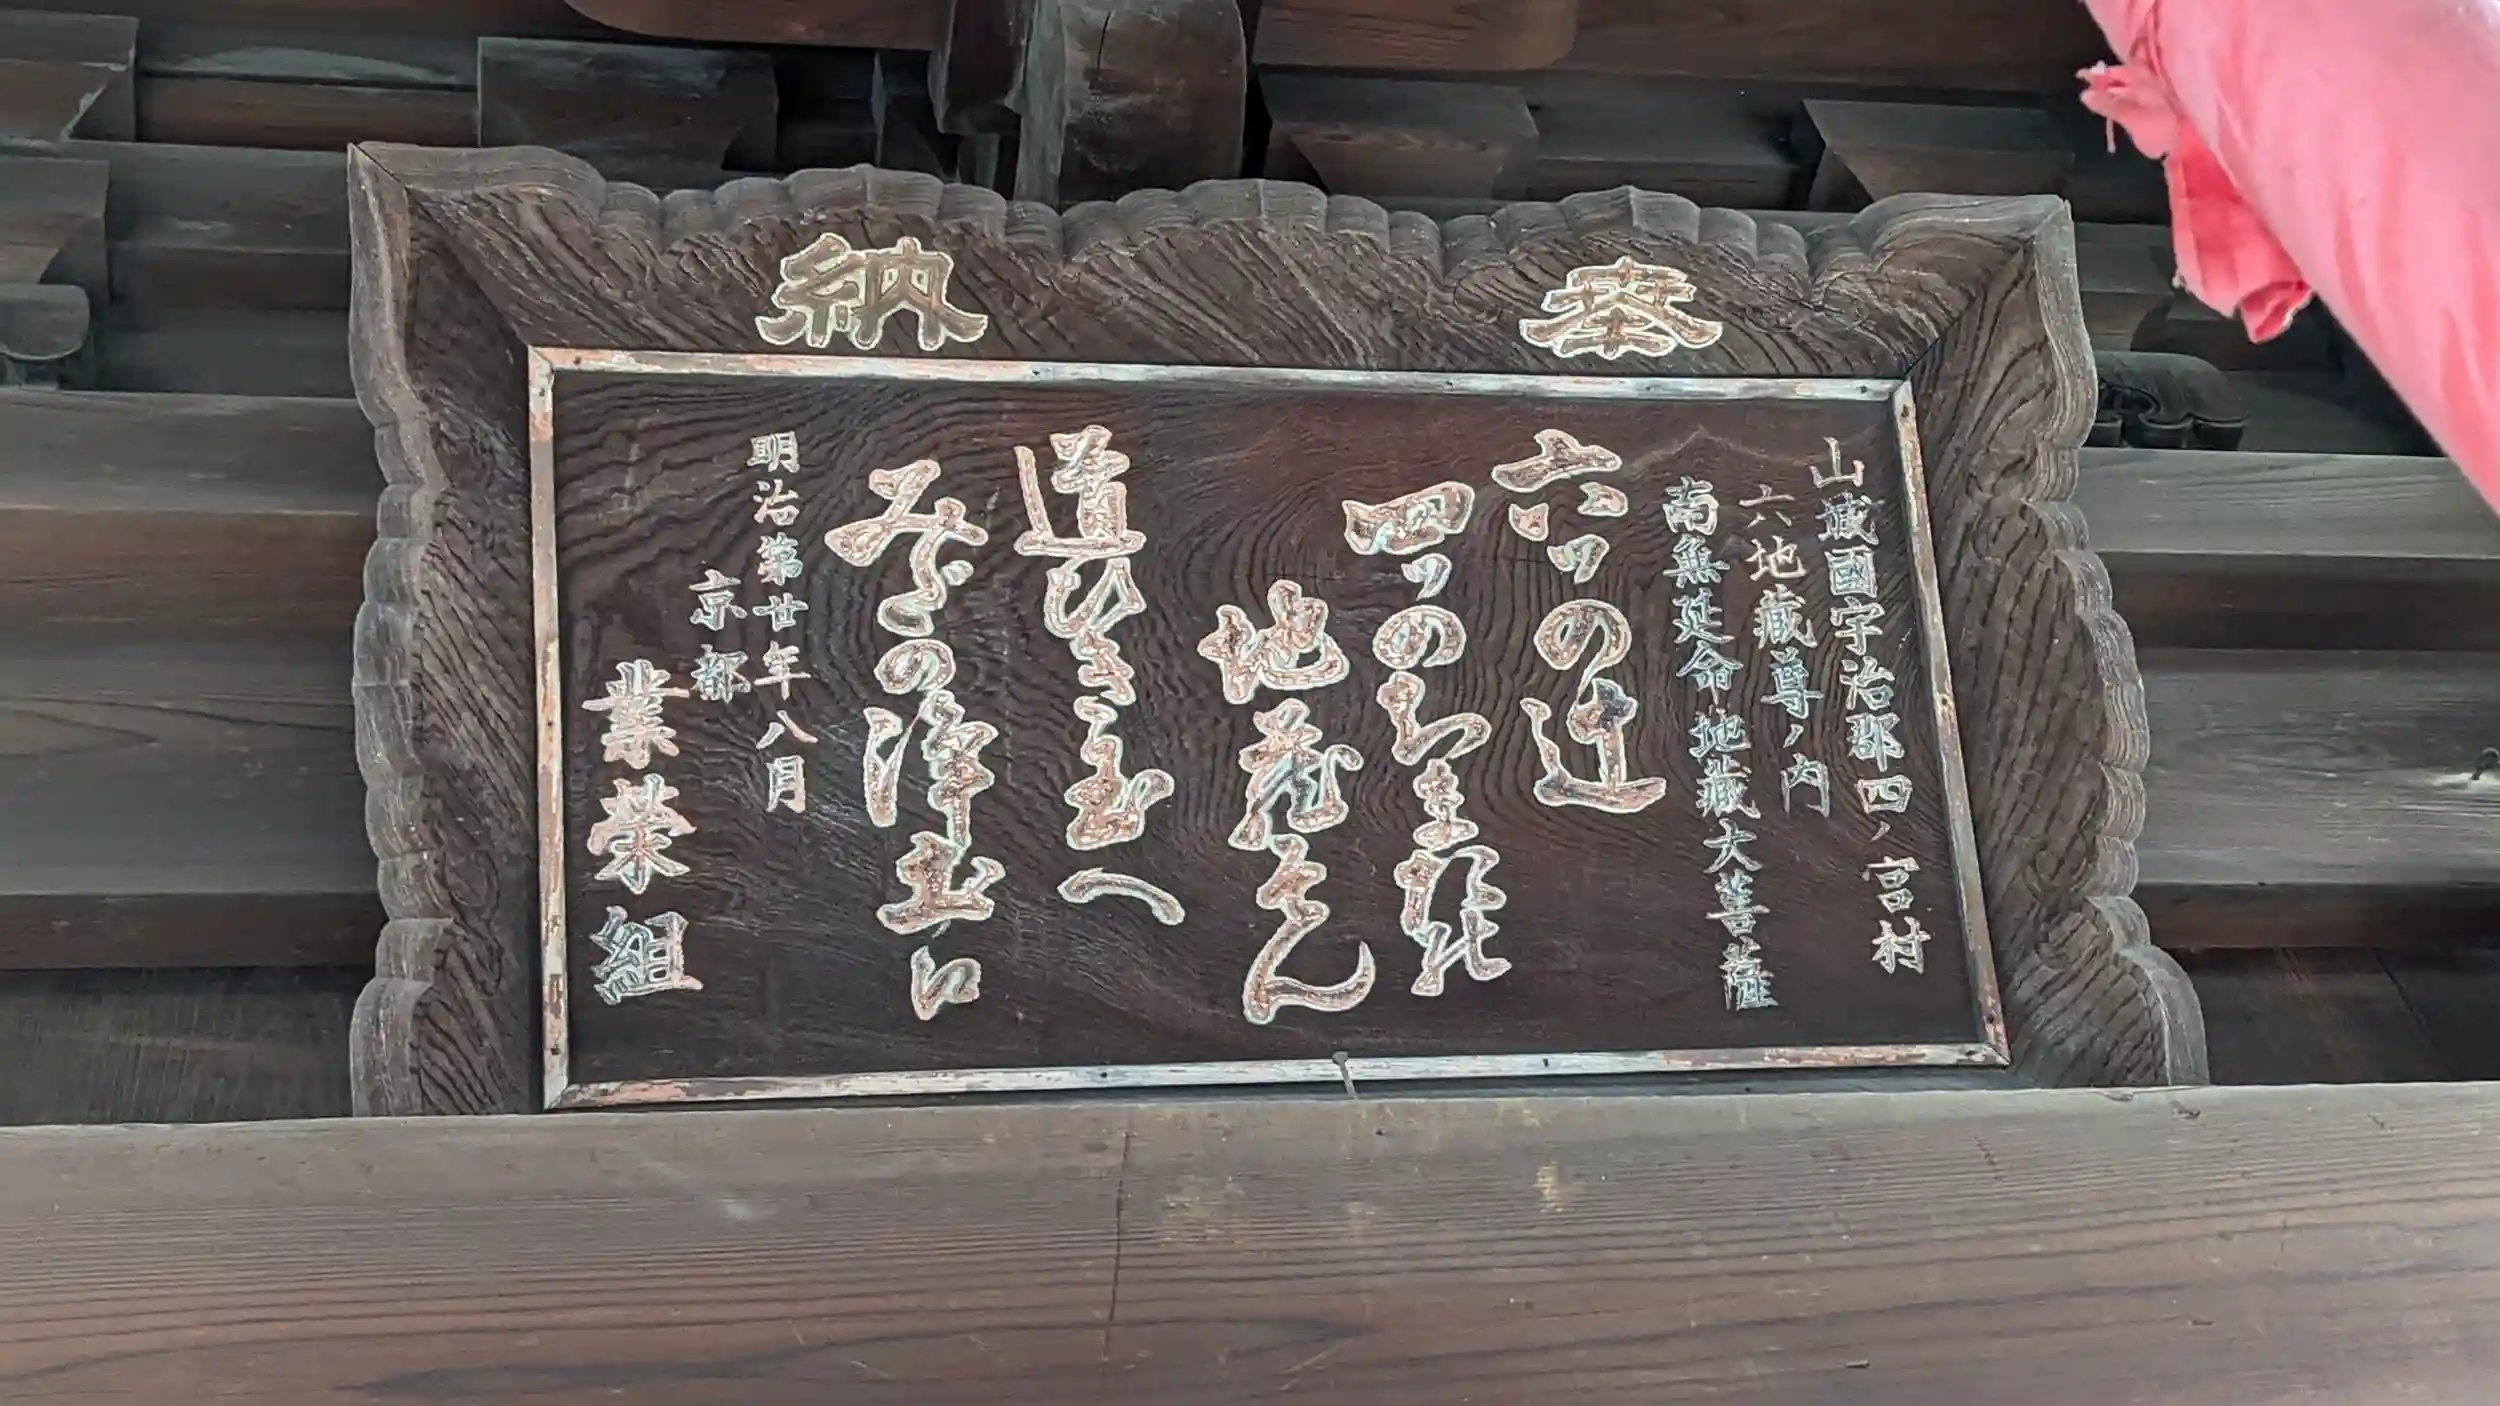 奉納
山城國宇治郡四ノ宮村
六地蔵尊ノ内
南無延命地蔵大菩薩
六ツの辻
四ツのちまたの
地蔵そん
道びき玉へ
みだの浄土に
明治第廿年八月
京都
業榮組